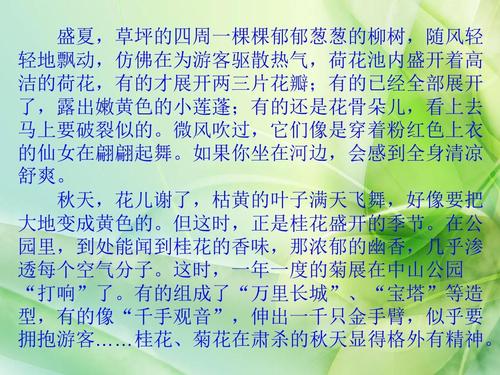 盛夏，草坪的四周一棵棵郁郁葱葱的柳树，随风轻
轻地飘动，仿佛在为游客驱散热气，荷花池内盛开着高
洁的荷花，有的才展开两三片花瓣；有的已经全部展开
了，露出嫩黄色的小莲蓬；有的还是花骨朵儿，看上去
马上要破裂似的。微风吹过，它们像是穿着粉红色上衣
的仙女在翩翩起舞。如果你坐在河边，会感到全身清凉
舒爽。
秋天，花儿谢了，枯黄的叶子满天飞舞，好像要把
大地变成黄色的。但这时，正是桂花盛开的季节。在公
园里，到处能闻到桂花的香味，那浓郁的幽香，几乎渗
透每个空气分子。这时，一年一度的菊展在中山公园
“打响”了。有的组成了“万里长城”、“宝塔”等造
型，有的像“千手观音”，伸出一千只金手臂，似乎要
拥抱游客……桂花、菊花在肃杀的秋天显得格外有精神。